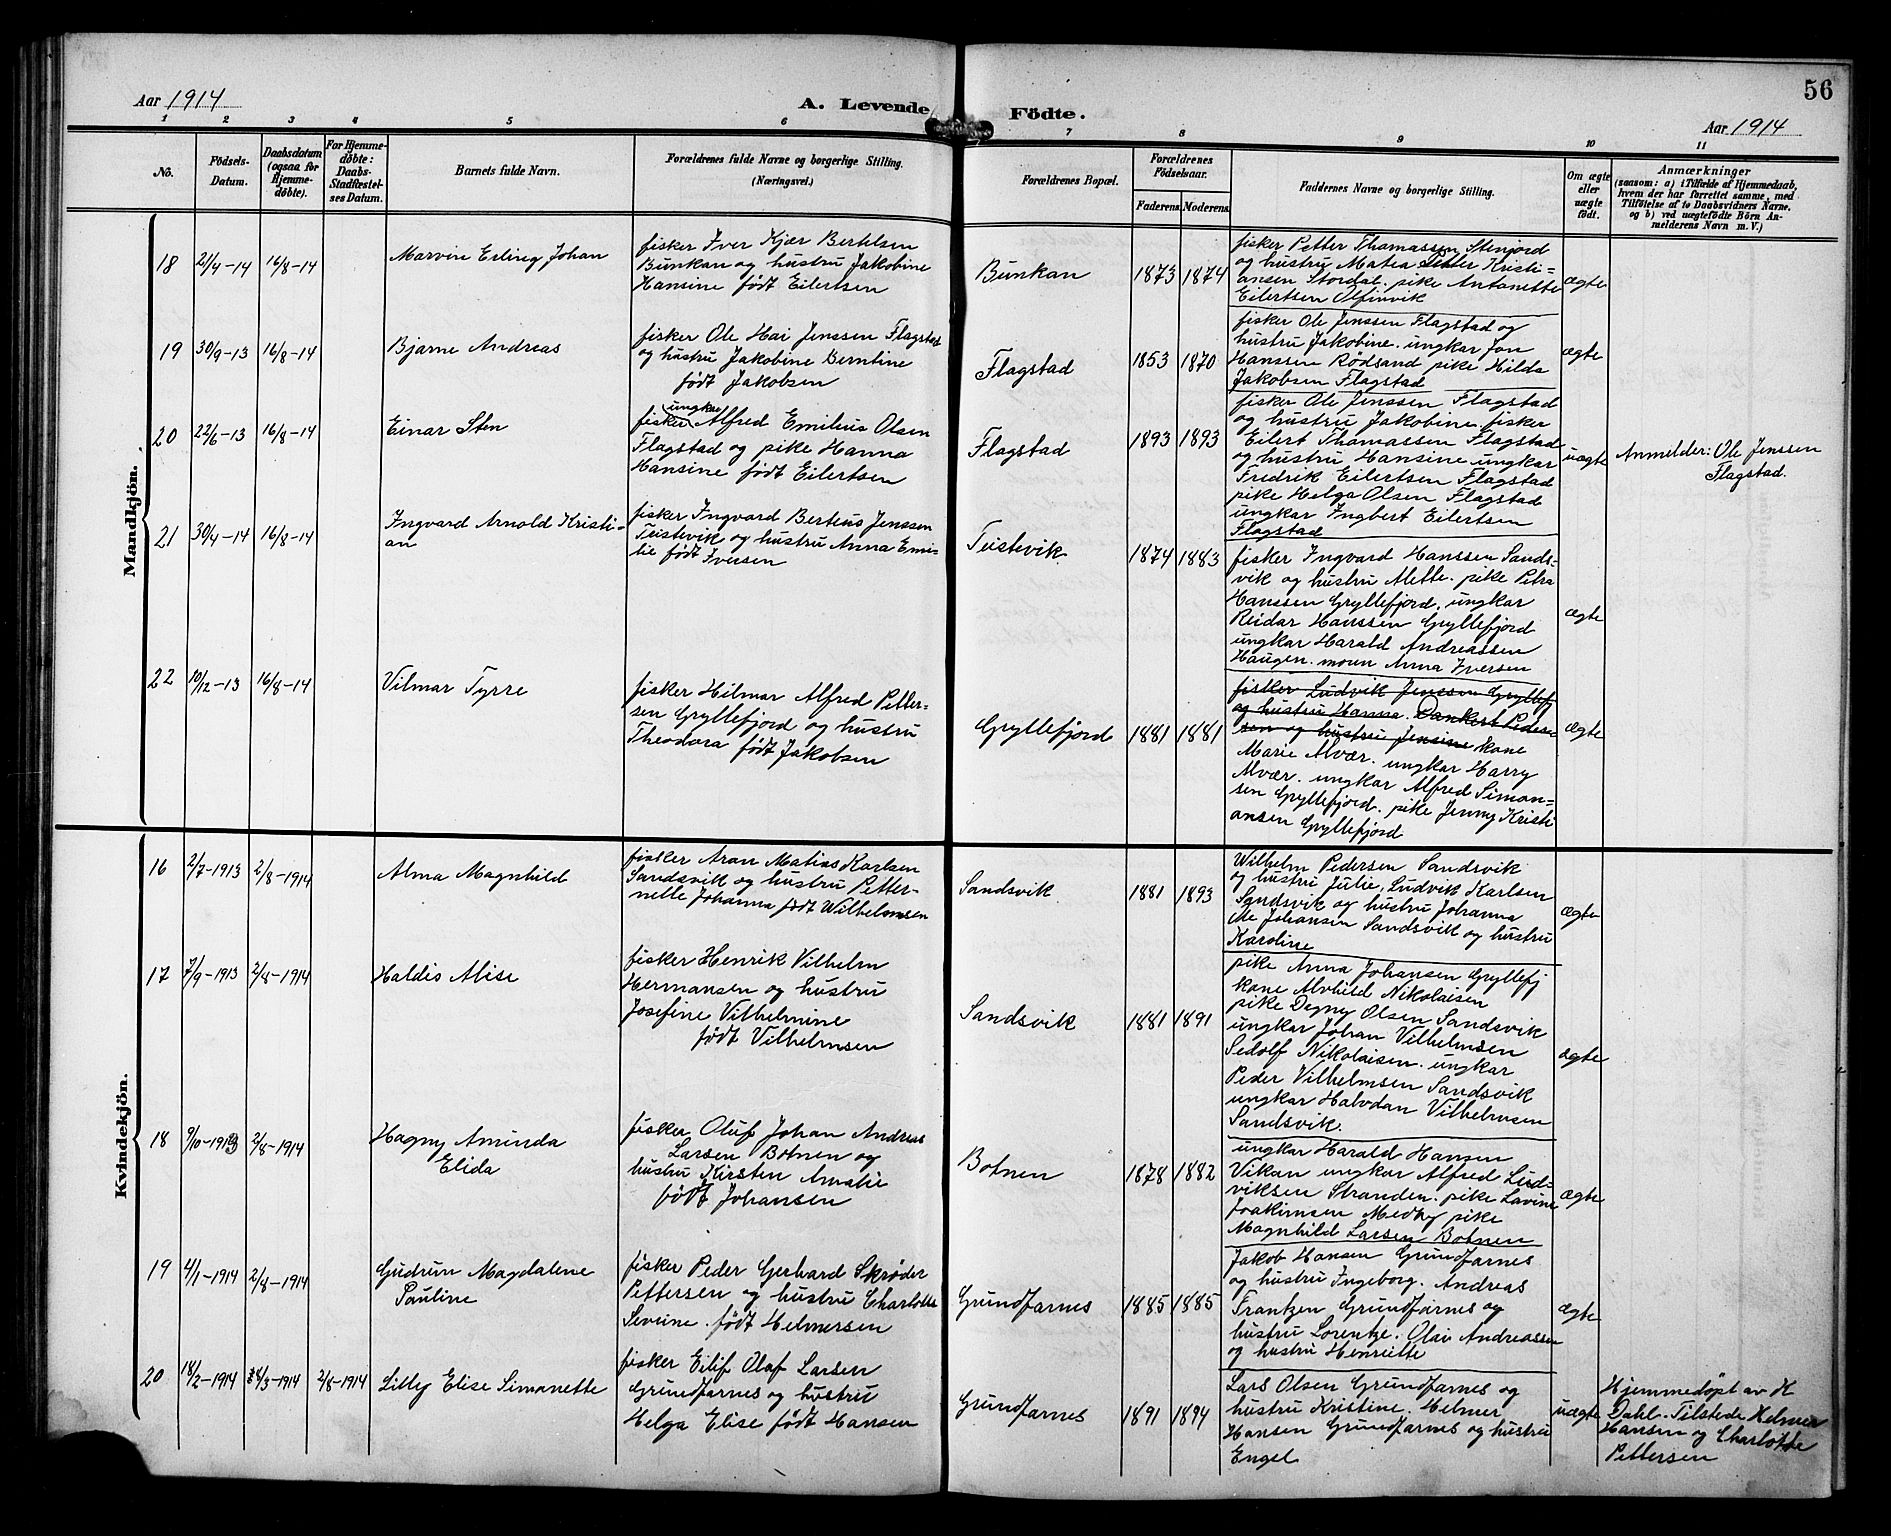 56
Aar 1914
A. Levende Födte.
Aar 1914
1 2 3 4 5 6 7 8 9 10 11
No.
Födsels-Datum.
Daabsdatum (ogsaa for Hjemmedöbte).
For Hjemmedöbte: Daabs-Stadfæstelses Datum.
Barnets fulde Navn.
Forældrenes fulde Navne og borgerlige Stilling. (Næringsvei.)
Forældrenes Bopæl.
Forældrenes Födselsaar.
Faderens. Moderens.
Faddernes Navne og borgerlige Stilling.
Om ægte eller uægte födt.
Anmærkninger
(saasom: a) i Tilfælde af Hjemmedaab,
hvem der har forrettet samme, med
Tilföielse af to Daabsvidners Navne.
og b) ved uægtefödte Börn An-
melderens Navn m. V.)
Mandkjön.
18 2/4-14 16/8-14
Marvin Erling Johan
fisker Iver Kjær Bertelsen
Bunkan og hustru Jakobine
Hansine født Eilertsen
Bunkan 1873 1874
fisker Petter Thomassen Stenjord
og hustru Matea Petter Kristi=
ansen Stordal. pike Antonette
Eilertsen Olfinvik
ægte
19 30/9-13 16/8-14
Bjarne Andreas
fisker Ole Hai Jenssen Flagstad
og hustru Jakobine Berntine
født Jakobsen
Flagstad 1853 1870
fisker Ole Jenssen Flagstad og
hustru Jakobine. ungkar Jon
Hanssen Rødsand pike Hilda
Jakobsen Flagstad
ægte
20 22/6-13 16/8-14
Einar Sten
ungkar
fisker Alfred Emilius Olsen
Flagstad og pike Hanna
Hansine født Eilertsen
Flagstad 1893 1893
fisker Ole Jenssen Flagstad
og hustru Jakobine. fisker
Eilert Thomassen Flagstad
og hustru Hansine ungkar
Fredrik Eilertsen Flagstad
pike Helga Olsen Flagstad
ungkar Ingbert Eilertsen
Flagstad
uægte
Anmelder: Ole Jenssen
Flagstad.
21 30/4-14 16/8-14
Ingvard Arnold Kristi-
an
fisker Ingvard Berteus Jenssen
Teistevik og hustru Anna Emi-
lie født Iversen
Teistevik 1874 1883
fisker Ingvard Hanssen Sands-
vik og hustru Alette. pike Petra
Hanssen Gryllefjord. ungkar
Reidar Hanssen Gryllefjord
ungkar Harald Andreassen
Haugen. moren Anna Iversen
ægte
22 10/12-13 16/8-14
Vilmar Tyrre
fisker Hilmar Alfred Petter-
sen Gryllefjord og hustru
Theodora født Jakobsen
Gryllefjord 1881 1881
fisker Ludvik Jenssen Gryllefj
og hustru Hanna. Dankert Peder
sen og hustru Jensine kone
Marie Alvær. ungkar Harry
Alvær. ungkar Alfred Simon=
sen Gryllefjord. pike Jenny Kristi
ansen Gryllefjord
ægte
Kvindekjön.
16 2/7-1913 2/8-1914
Alma Magnhild
fisker Aran Matias Karlsen
Sandsvik og hustru Petter-
nelle Johanna født Wilhelmsen
Sandsvik 1881 1893
Wilhelm Pedersen Sandsvik
og hustru Julie, Ludvik Karlsen
Sandsvik og hustru Johanna
Ole Johansen Sandsvik og hustru
Karoline
ægte
17 7/9-1913 2/8-1914
Haldis Alise
fisker Henrik Vilhelm
Hermansen og hustru
Josefine Vilhelmine
født Vilhelmsen
Sandsvik 1881 1891
pike Anna Johansen Gryllefj
kone Alvhild Nikolaisen
pike Degny Olsen Sandsvik
ungkar Johan Vilhelmsen
Sedolf Nikolaisen. ungkar
Peder Vilhelmsen Sandsvik
ungkar Halvdan Vilhelmsen
Sandsvik.
ægte
18 9/10-1913 2/8-1914
Hagny Aminda
Elida
fisker Oluf Johan Andreas
Larsen Botnen og
hustru Kirsten Amalie
født Johansen
Botnen 1878 1882
ungkar Harald Hansen
Vikan ungkar Alfred Lud-
viksen Stranden. pike Lavine
Joakimsen Medby pike
Magnhild Larsen Botnen
ægte
19 4/1-1914 2/8-1914
Gudrun Magdalene
Pauline
fisker Peder Gerhard Skrøder
Pettersen og hustru Charlotte
Severine. født Helmersen
Grundfarnes 1885 1885
Jakob Hansen Grundfarnes
og hustru Ingeborg. Andreas
Frantzen Grundfarnes og
hustru Lorentze. Olai Andreassen
og hustru Henriette
ægte
20 14/2-1914 24/3-1914 2/8-1914
Lilly Elise Simonette
fisker Eilif Olaf Larsen
Grundfarnes og hustru
Helga Elise født Hansen
Grundfarnes 1891 1894
Lars Olsen Grundfarnes og
hustru Kristine. Helmer
Hansen Grundfarnes og hustru
Engel
uægte
Hjemmedøpt av K
Dahl. Tilstede Helmer
Hansen og Charlotte
Pettersen